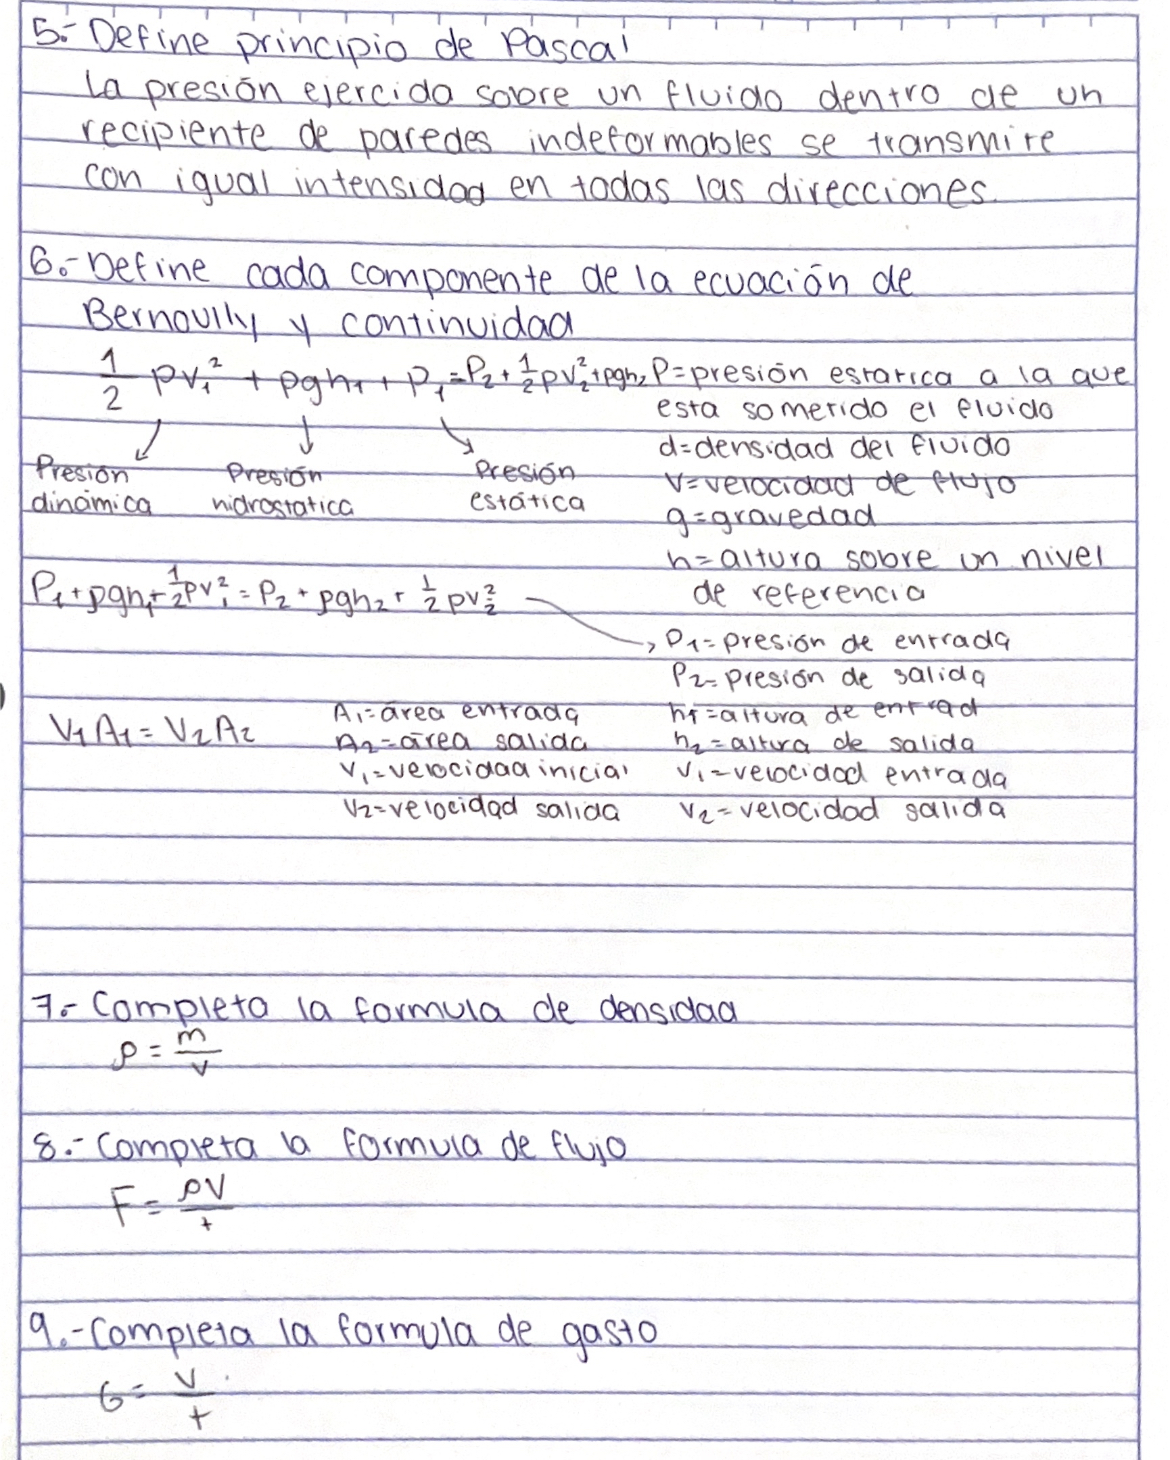 5.- Define principio de Pascal
La presión ejercida sobre un fluido dentro de un
recipiente de paredes indeformables se transmite
con igual intensidad en todas las direcciones.
6.- Define cada componente de la ecuación de
Bernoully y continuidad
1/2 ρv₁² + ρgh₁ + P₁ = P₂ + 1/2 ρv₂² + ρgh₂
P=presión estatica a la que
esta sometido el fluido
d=densidad del fluido
v=velocidad de flujo
g=gravedad
h=altura sobre un nivel
de referencia
Presión
dinámica
Presión
hidrostatica
Presión
estática
P₁ + ρgh₁ + 1/2 ρv₁² = P₂ + ρgh₂ + 1/2 ρv₂²
P₁=presión de entrada
P₂=presión de salida
h₁=altura de entrad
h₂=altura de salida
v₁=velocidad entrada
v₂=velocidad salida
V₁A₁ = V₂A₂
A₁=área entrada
A₂=área salida
v₁=velocidad inicial
v₂=velocidad salida
7.- Completa la formula de densidad
ρ = m/v
8.- Completa la formula de flujo
F = ρV/t
9.- Completa la formula de gasto
G = V/t